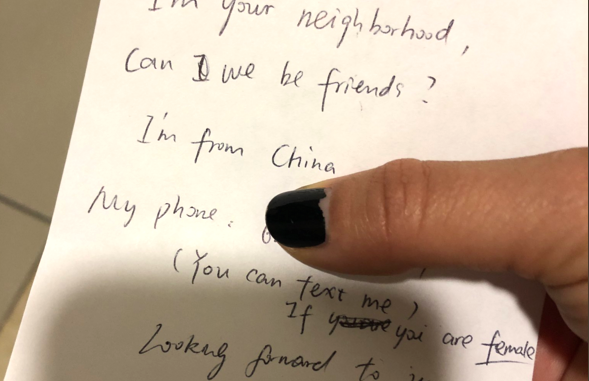 I'm your neighborhood,
Can we be friends?
I'm from China
My phone:
(You can text me)
If you are female
Looking forward to